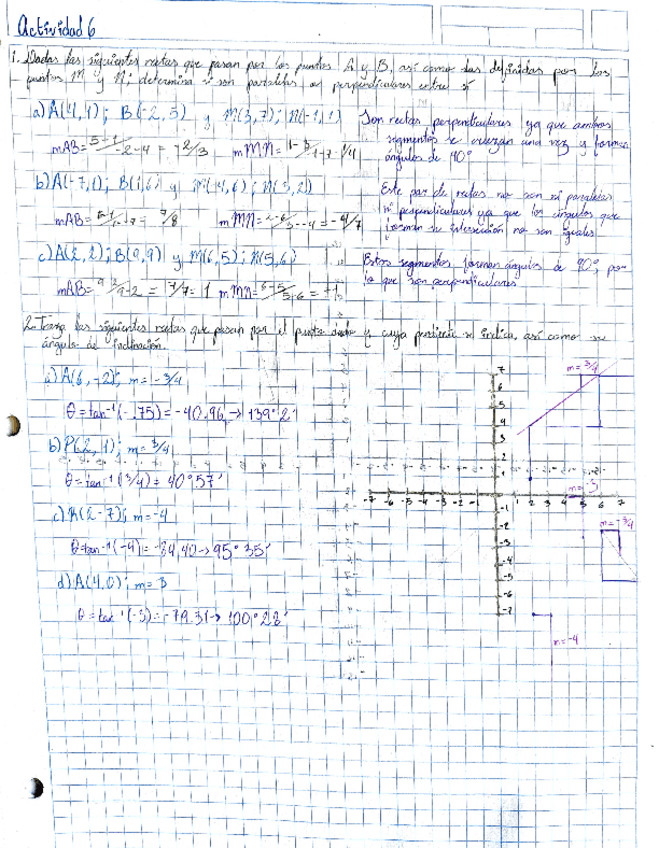 Actividad 6
1. Dadas las siguientes rectas que pasan por los puntos A y B, así como las definidas por los
puntos M y N; determina si son paralelas o perpendiculares entre sí
a) A(4,4); B(-2,5) y M(3,7); N(-1,1) Son rectas perpendiculares ya que ambos
segmentos se cruzan una vez y forman
ángulos de 90°
b) A(-7,1); B(1,6) y M(-4,6); N(3,2) Este par de rectas no son ni paralelas
ni perpendiculares ya que los ángulos que
forman su intersección no son iguales
mAB= = 7/8 mMN= = -4/7
c) A(2,2); B(9,9) y M(6,5); N(5,6) Estos segmentos forman ángulos de 90°, por
lo que son perpendiculares
mAB= 9-2/9-2 = 7/7 = 1 mMN= 6-5/5-6 = -1
2. Traza las siguientes rectas que pasan por el punto dado y cuya pendiente se indica, así como su
ángulo de inclinación.
a) A(6,-2); m=-3/4
θ=tan⁻¹(-.75)=-40.96 → 139°2'
b) P(2,1); m=3/4
θ=tan⁻¹(3/4)= 40°57'
c) R(2-7); m=-4
θ=tan⁻¹(-4)= → 95°35'
d) A(4,0); m=3
θ=tan⁻¹(-3)= → 100°23'
m=3/4
7
6
5
4
3
2
1
-7 -6 -5 -4 -3 -2 -1 1 2 3 4 5 6 7
m=-3
-1
-2
m=-3/4
-3
-4
-5
-6
-7
m=-4